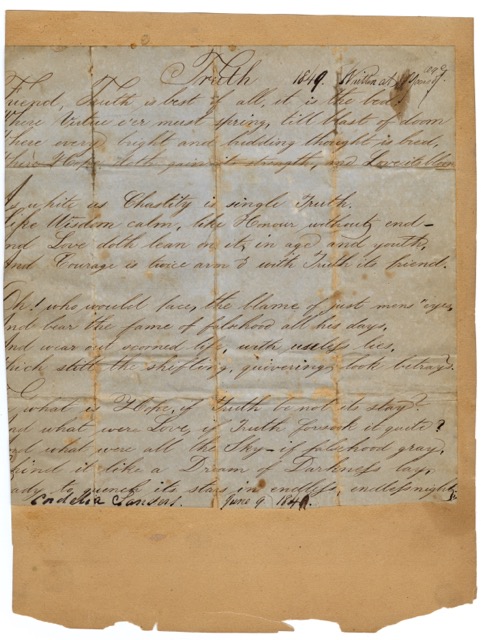 Truth 1849. Written at age
Friend, Truth is best of all, it is the bed
Where Virtue e'er must spring, till blast of doom
Where every bright and budding thought is bred,
Where Hope doth gain its strength, and Love its bloom
As white as Chastity is single Truth.
Like Wisdom calm, like Honour without end—
And Love doth lean on it, in age and youth,
And Courage is twice arm'd with Truth its friend.
Oh! who would face, the blame of just mens' eyes,
And bear the fame of falshood all his days,
And wear out scorned life, with useless lies,
Which still the shifting, quivering look betrays.
what is Hope, if Truth be not its stay?
And what were Love, if Truth forsook it quite?
And what were all the Sky—if falshood gray,
Behind it like a Dream of Darkness lay,
Ready to quench its stars in endless, endless night
June 9 184